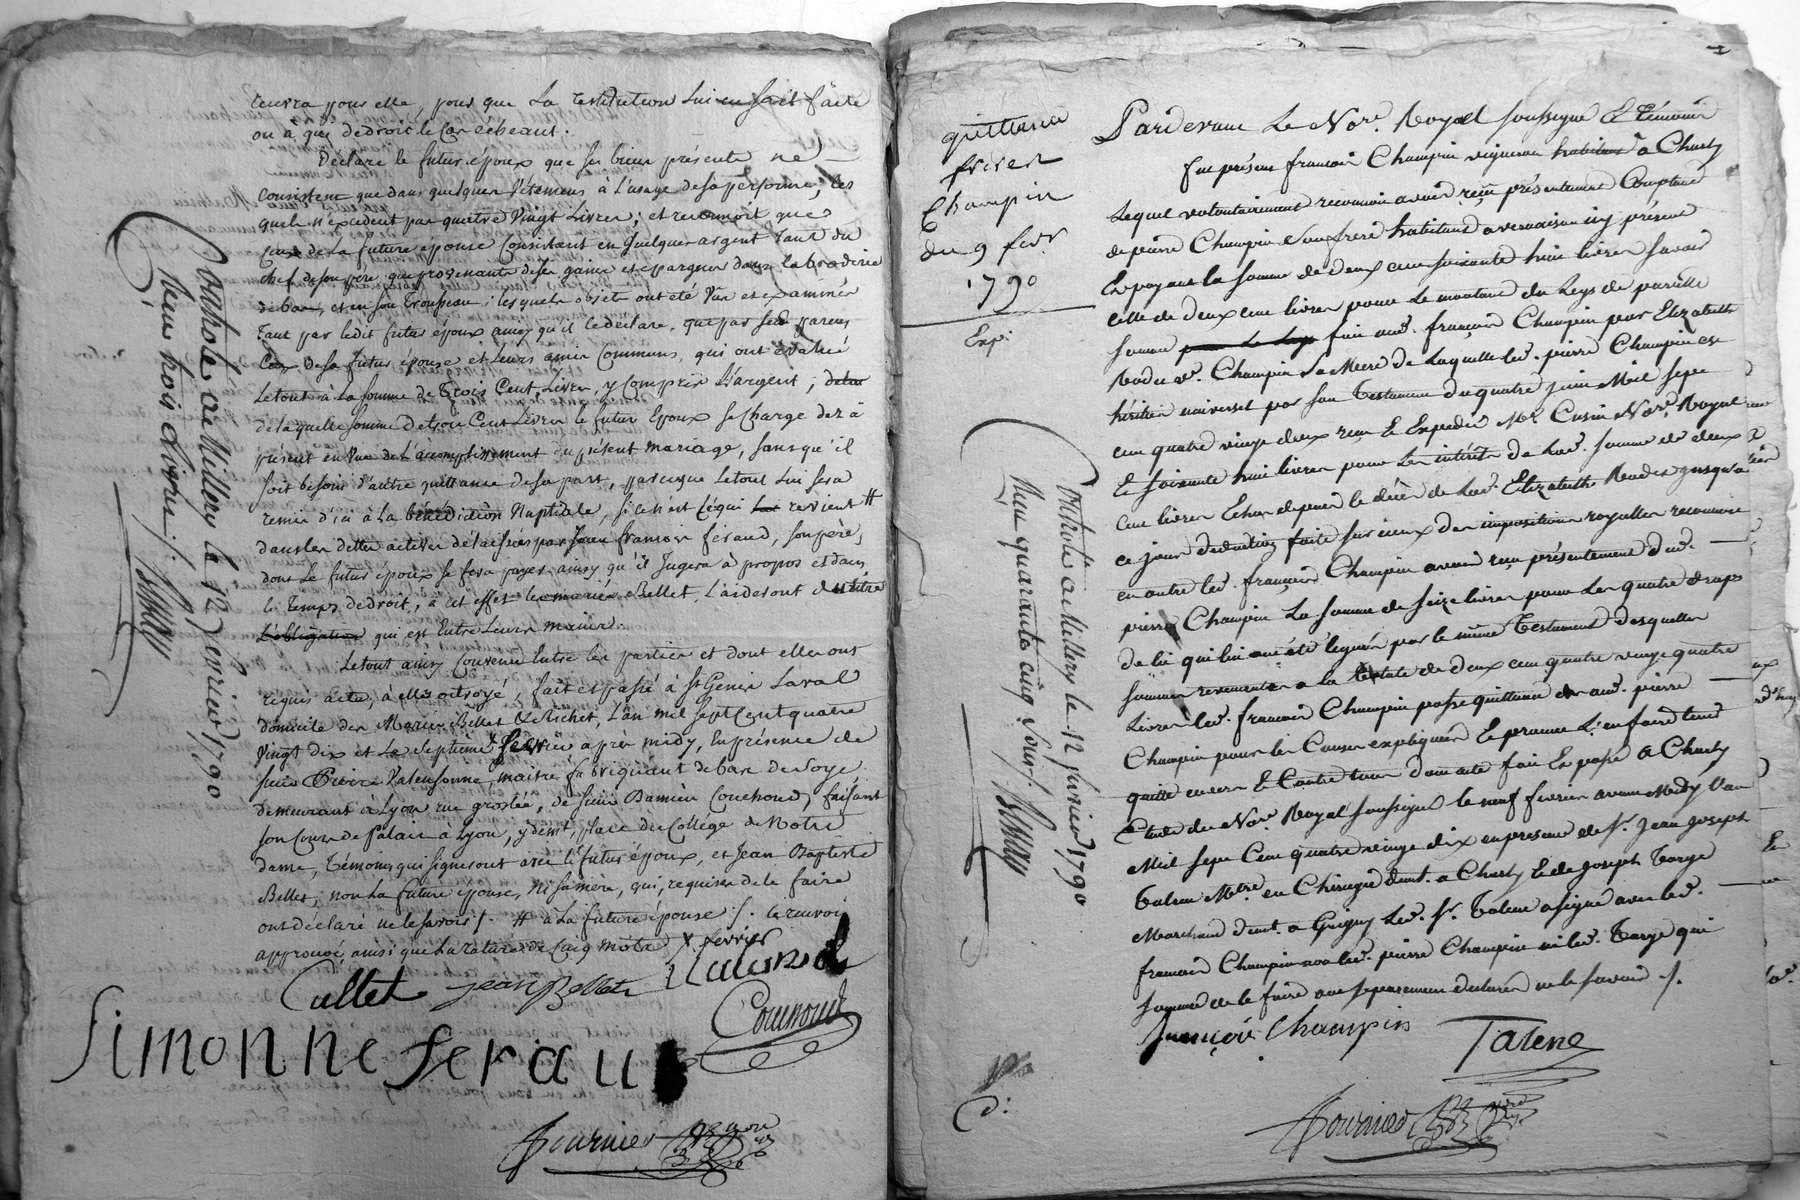 tenra pour elle, pour que la restitution lui en soit faite
ou à qui de droit le Cas échéant.
Declare le futur époux que ses biens présents ne
consistent que dans quelques vêtemens à l'usage de sa personne, les
quels n'excedent pas quatre vingt Livres; et reconnoit que
ceux de la future épouse consistant en quelque argent tant du
chef de son père que provenants de ses gains et epargnes dans la broderie
de bas, et en son trousseau; lesquels objets ont été vus et examinés
tant par ledit futur époux ainsy qu'il le declare, que par ses parens
Ceux de sa futur épouse et leurs amis communs, qui ont évalué
Le tout à la somme de Trois Cent Livres, y compris L'argent;
de laquelle somme de trois Cent Livres le futur Epoux se charge dez à
présent en vue de L'accomplissement du présent mariage, sans qu'il
soit besoin d'autre quittance de sa part, parceque Le tout lui sera
remis d'ici à la bénédiction Nuptiale, si ce n'est ce qui revient #
dans les dettes actives délaissées par Jean françois feraud, son père,
dont Le futur époux se fera payer ainsy qu'il Jugera à propos et dans
le temps de droit, à cet effet les mariés Bellet L'aideront du titre
L'obligation qui est Entre Leurs mains.
Le tout ainsy convenu Entre les parties et dont elles ont
requis acte, à elles octroyé, fait et passé à St Genis Laval
domicile des Mariés Bellet et Richet, L'an mil sept Cent quatre
Vingt dix et Le Septième février après midy, En présence de
sieur Pierre Valensonne, maitre fabriquant de bas de Soye
demeurant à Lyon rue grolée, de sieur Damien Couchoud, faisant
son Cours de Palais à Lyon, y demt, place du Collége de Notre
dame, Témoins qui signeront avec le futur époux, et Jean Baptiste
Bellet, non La future épouse, Ni sa mère, qui, requises de le faire
ont déclaré ne le savoir /. # à La future épouse /. le renvoi
approuvé ainsi que La rature de Cinq mots x fevrier
Jean Bellet
Couchoud
Simonne feraud
Fournier
Controlé à Millery le 12 fevrier 1790
Reçu trois Livres
quittance
frères
Champin
du 9 fevr
1790
Exp.
Pardevant Le Nore. Royal soussigné Et témoins
fut présent françois Champin vigneron habitant à Charly
Lequel volontairement reconnoit avoir reçu présentement Comptant
de pierre Champin son frere habitant a vernaison icy présent
Et payant la somme de deux cent soixante huit livres savoir
celle de deux cent livres pour Le montant du Legs de pareille
somme pour Le Legs fait aud. françois Champin par Elizabeth
Rode ve. Champin sa Mere de Laquelle led. pierre Champin est
héritier universel par son Testament du quatre juin Mil sept
cent quatre vingt deux reçu Et Expedié Me. Cusin Nore. Royal
Et soixante huit livres pour Les intérêts de lad. somme de deux
cent livres Echus depuis le décès de lad. Elizabeth Rode jusqu'à
ce jour deduction faite sur iceux des impositions royalles reconnoit
en outre led. françois Champin avoir reçu présentement dud.
pierre Champin La somme de seize livres pour Les quatre draps
de lit qui lui ont été légués par le même Testament desquelles
sommes revenantes a la totale de deux cent quatre vingt quatre
Livres led. françois Champin passe quittance aud. pierre
Champin pour les Causes expliquées Et promet L'en faire tenir
quitte envers Et Contre tous dont acte fait Et passé a Charly
Etude du Nore. Royal soussigné le neuf fevrier avant Midy L'an
Mil sept Cent quatre vingt dix en presence de Sr. Jean Joseph
Talene Mtre. en Chirurgie demt. a Charly Et de Joseph Targe
Marchand demt. a Grigny Led. Sr. Talene a signé avec led.
francois Champin non led. pierre Champin ni led. Targe qui
sommés de le faire ont separement declarés ne le savoir /.
françois Champin
Talene
Fournier
Controlé a Millery le 12 fevrier 1790
Reçu quarante cinq sous